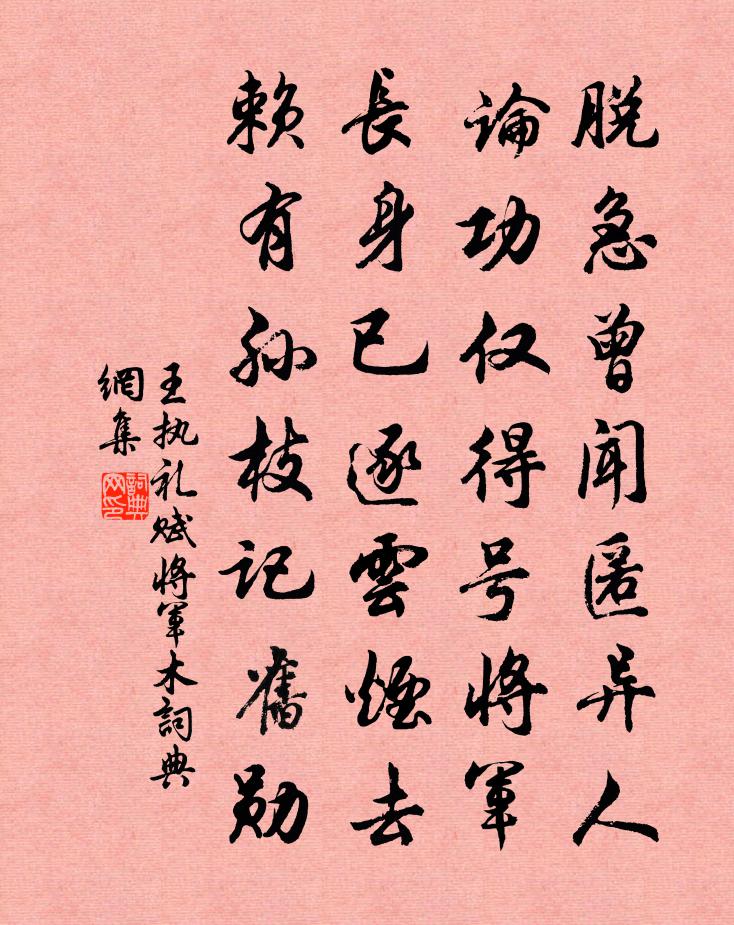 脱急曾闻匿异人
論功仅得号將軍
長身已逐雲煙去
赖有孙枝记舊勋
王执礼赋將軍木詞典
網集
詞典
网印